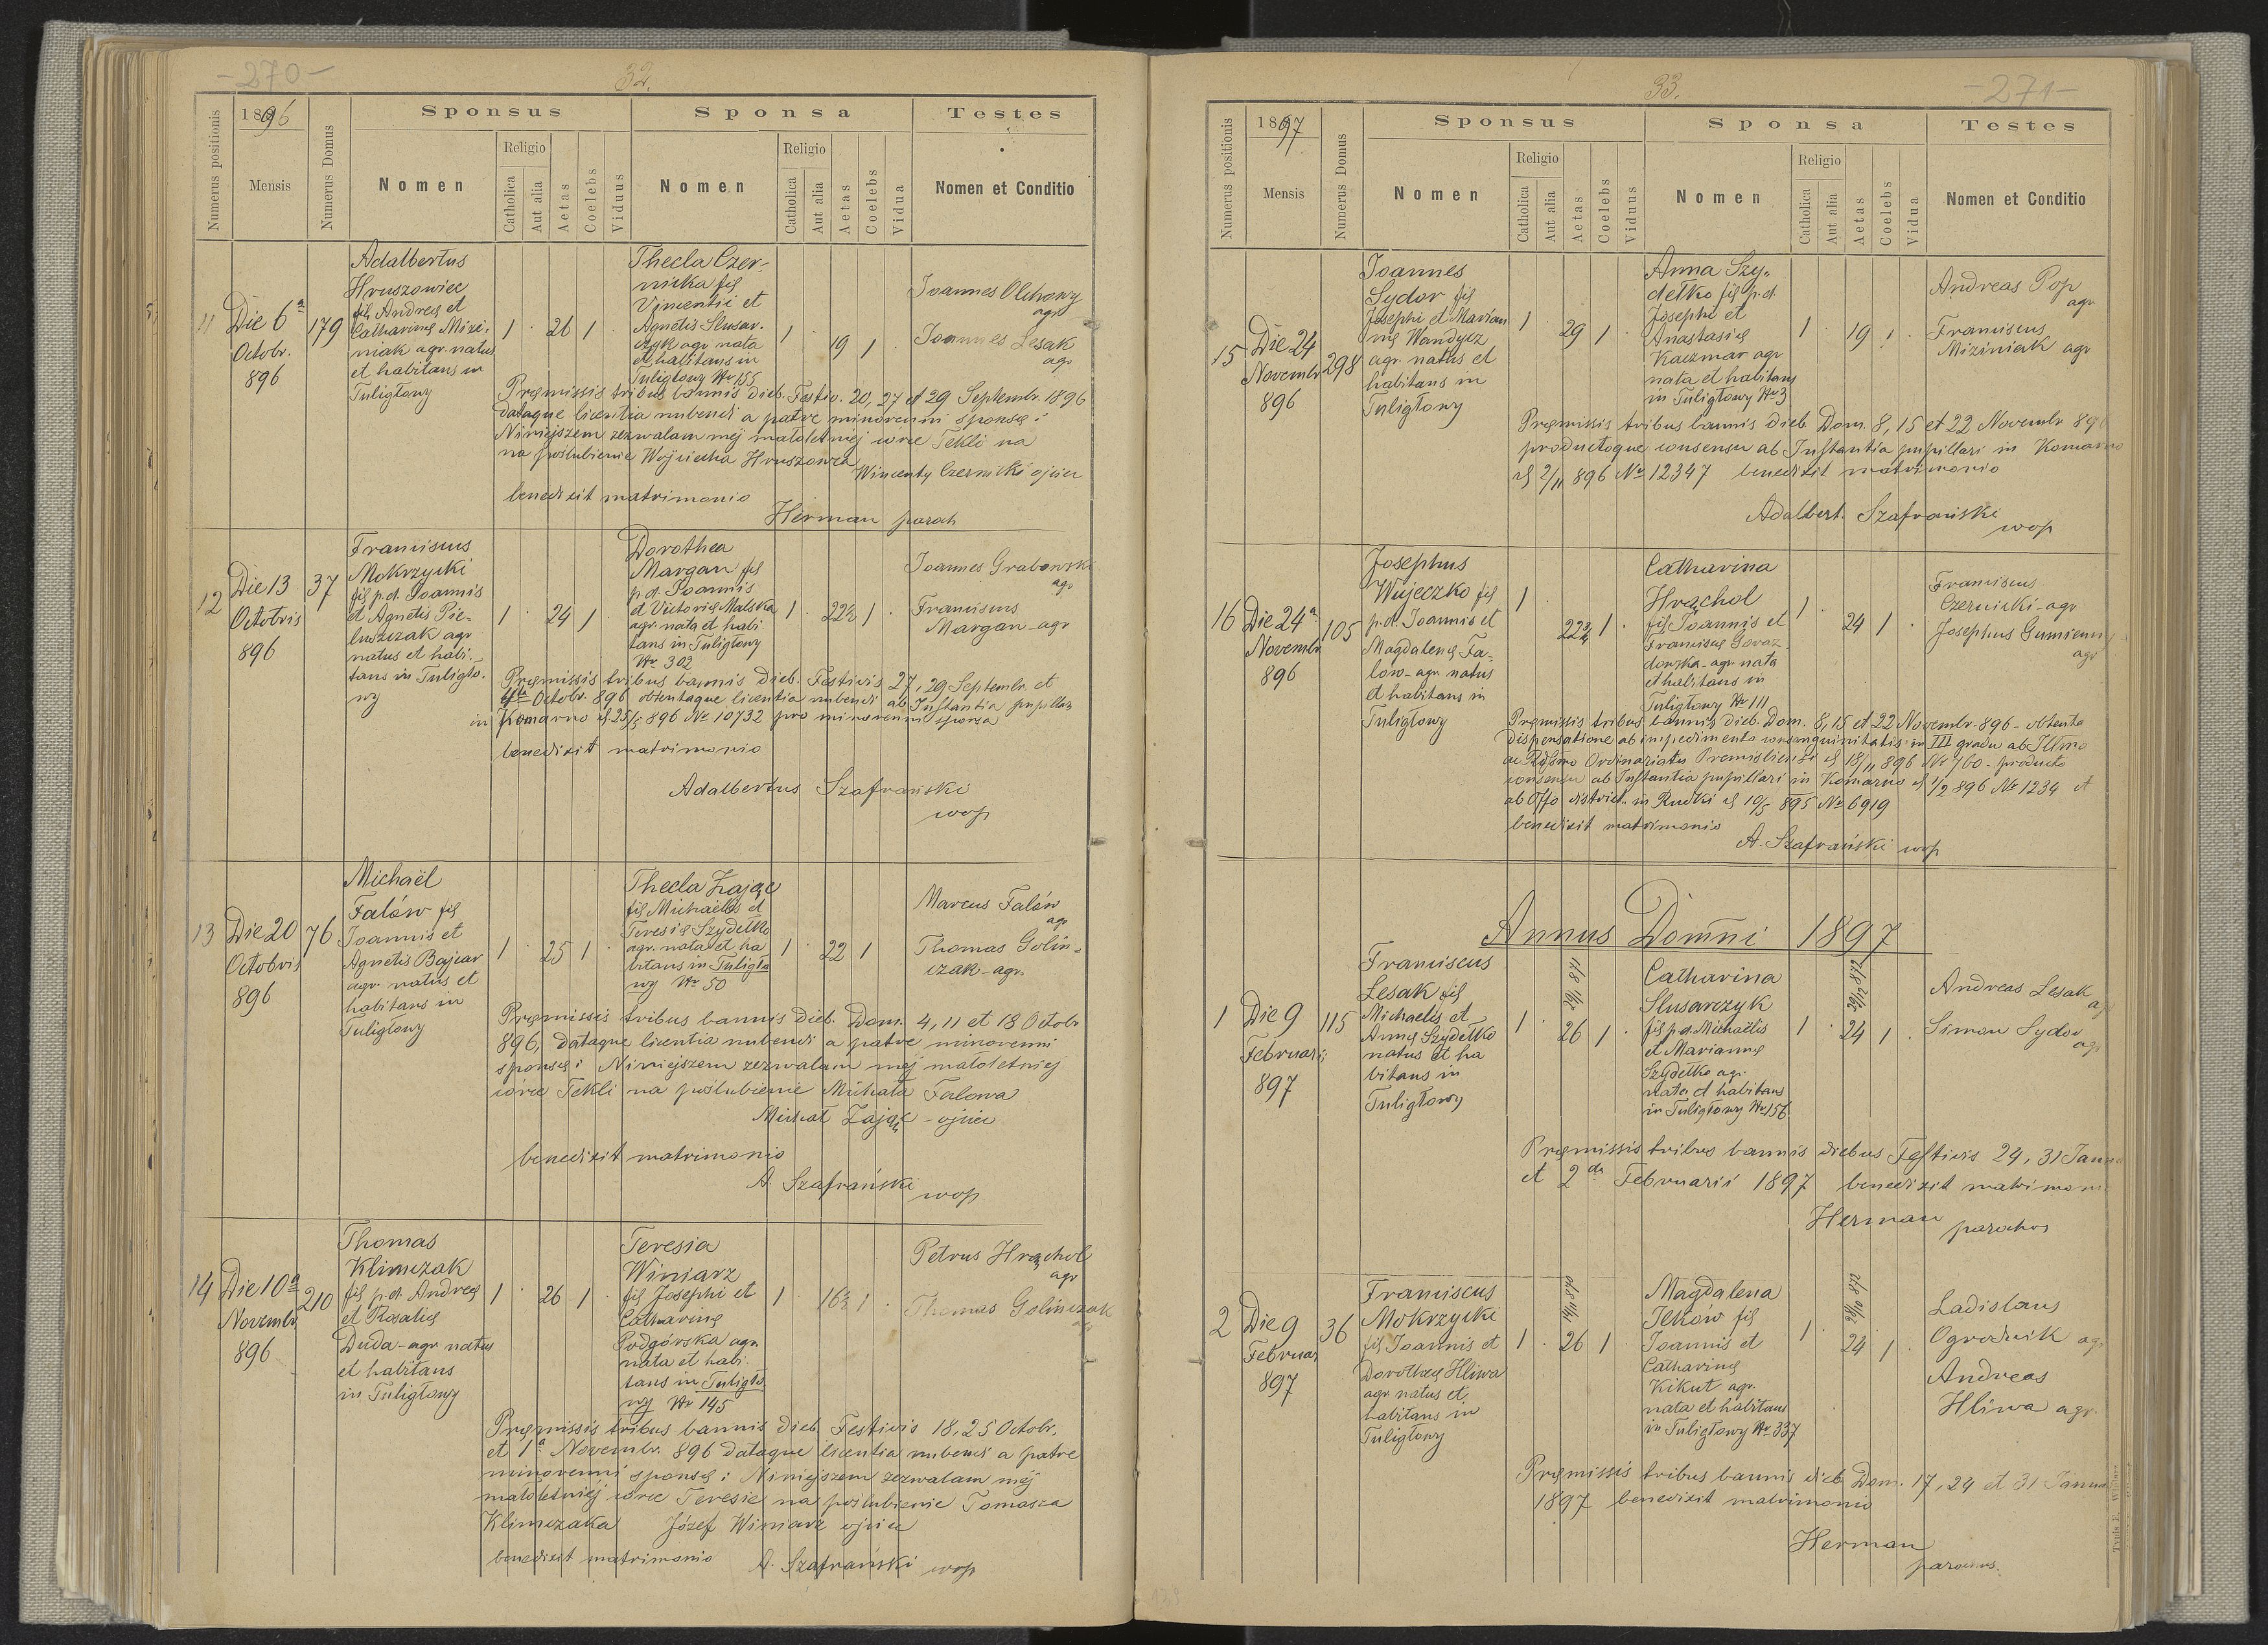 - 270 -
32.
Numerus positionis
1896
Mensis
Numerus Domus
Sponsus
Nomen
Religio
Catholica
Aut alia
Aetas
Coelebs
Viduus
Sponsa
Nomen
Religio
Catholica
Aut alia
Aetas
Coelebs
Vidua
Testes
Nomen et Conditio
11
Die 6a
Octobr.
896
179
Adalbertus
Hruszowiec
fil. Andreę et
Catharinę Mizi-
niak agr. natus
et habitans in
Tuligłowy
1 · 26 1 ·
Thecla Czer-
nicka fil
Vincentii et
Agnetis Slusar-
czyk agr nata
et habitans in
Tuligłowy Nr 155
1 · 19 1 ·
Joannes Olchowy
agr
Joannes Lesak
agr
Pręmissis tribus bannis dieb. Festiv. 20, 27 et 29 Septembr. 1896
dataque licentia nubendi a patre minorenni sponsę:
Niniejszem zezwalam mej małoletniej córce Tekli na
na poślubienie Wojciecha Hruszowca
Wincenty Czernicki ojciec
benedixit matrimonio
Herman paroch
12
Die 13
Octobris
896
37
Franciscus
Mokrzycki
fil p.d. Joannis
et Agnetis Pie-
luszczak agr
natus et habi-
tans in Tuligło-
wy
1 · 24 1 ·
Dorothea
Margan fil
p.d. Joannis
et Victorię Malska
agr. nata et habi
tans in Tuligłowy
Nr 302
1 · 22½ 1 ·
Joannes Grabowski
agr
Franciscus
Margan - agr
Pręmissis tribus bannis dieb. Festivis 27, 29 Septembr. et
4ta Octobr. 896 obtentaque licentia nubendi ab Instantia pupillar
in Komarno 25/5 896 No 10732 pro minorenni sponsa
benedixit matrimonio
Adalbertus Szafrański
wop
13
Die 20
Octobris
896
76
Michaël
Falów fil
Joannis et
Agnetis Bajcar
agr. natus et
habitans in
Tuligłowy
1 · 25 1 ·
Thecla Zając
fil Michaëlis et
Teresię Szydełko
agr. nata et ha
bitans in Tuligło
wy Nr 50
1 · 22 1 ·
Marcus Falów
agr
Thomas Golin-
czak - agr.
Pręmissis tribus bannis dieb. Dom. 4, 11 et 18 Octobr
896, dataque licentia nubendi a patre minorenni
sponsę: Niniejszem zezwalam mej małoletniej
córce Tekli na poślubienie Michała Falowa
Michał Zając - ojciec
benedixit matrimonio
A. Szafrański wop
14
Die 10a
Novembr
896
210
Thomas
Klimczak
fil p.d. Andreę
et Rosalię
Duda - agr natus
et habitans
in Tuligłowy
1 · 26 1 ·
Teresia
Winiarz
fil Josephi et
Catharinę
Podgórska agr.
nata et habi-
tans in Tuligło
wy Nr 145
1 · 16½ 1 ·
Petrus Hrąchol
agr
Thomas Golinczak
agr
Pręmissis tribus bannis dieb. Festivis 18, 25 Octobr.
et 1a Novembr. 896 dataque licentia nubendi a patre
minorenni sponsę: Niniejszem zezwalam mej
małoletniej córce Teresie na poślubienie Tomasza
Klimczaka Józef Winiarz ojciec
benedixit matrimonio A. Szafrański wop
33.
- 271 -
Numerus positionis
1897
Mensis
Numerus Domus
Sponsus
Nomen
Religio
Catholica
Aut alia
Aetas
Coelebs
Viduus
Sponsa
Nomen
Religio
Catholica
Aut alia
Aetas
Coelebs
Vidua
Testes
Nomen et Conditio
15
Die 24
Novembr
896
298
Joannes
Sydor fil
Josephi et Marian
nę Wandycz
agr. natus et
habitans in
Tuligłowy
1 · 29 1 ·
Anna Szy-
dełko fil p.d.
Josephi et
Anastasię
Kaczmar agr
nata et habitans
in Tuligłowy Nr 3
1 · 19 1 ·
Andreas Pop
agr
Franciscus
Miziniak agr
Pręmissis tribus bannis dieb. Dom. 8, 15 et 22 Novembr 896
productoque consensu ab Instantia pupillari in Komarno
2/11 896 No 12347 benedixit matrimonio
Adalbert. Szafrański
wop
16
Die 24a
Novembr.
896
105
Josephus
Wujeczko fil
p.d. Joannis et
Magdalenę Fa-
lów - agr. natus
et habitans in
Tuligłowy
1 · 22¾ 1 ·
Catharina
Hrąchol
fil Joannis et
Franciscę Goraz-
dowska - agr nata
et habitans in
Tuligłowy Nr 111
1 · 24 1 ·
Franciscus
Czernicki - agr
Josephus Gumienny
agr
Pręmissis tribus bannis dieb. Dom. 8, 15 et 22 Novembr. 896 - obtenta
dispensatione ab impedimento consanguinitatis in III gradu ab Illmo
ac Rdsmo Ordinariatu Premisliensi 18/11 896 No 760 - producto
consensu ab Instantia pupillari in Komarno 1/2 896 No 1234 et
ab Offo district. in Rudki 10/5 895 No 6919
benedixit matrimonio
A. Szafrański wop
Annus Domni 1897
1
Die 9
Februarii
897
115
Franciscus
Lesak fil
Michaelis et
Annę Szydełko
natus et ha
bitans in
Tuligłowy
1 · 26 1 ·
Catharina
Slusarczyk
fil p.d. Michaëlis
et Mariannę
Szydełko agr.
nata et habitans
in Tuligłowy Nr 156
1 · 24 1 ·
Andreas Lesak
agr
Simon Sydor
agr
Pręmissis tribus bannis diebus Festivis 24, 31 Janua
et 2da Februarii 1897 benedixit matrimonio
Herman parochus
2
Die 9
Februar
897
36
Franciscus
Mokrzycki
fil Joannis et
Dorotheę Hliwa
agr natus et
habitans in
Tuligłowy
1 · 26 1 ·
Magdalena
Ieków fil
Joannis et
Catharinę
Kikut agr.
nata et habitans
in Tuligłowy Nr 337
1 · 24 1 ·
Ladislaus
Ogrodnik agr
Andreas
Hliwa agr.
Pręmissis tribus bannis dieb Dom. 17, 24 et 31 Janua
1897 benedixit matrimonio
Herman
parochus.